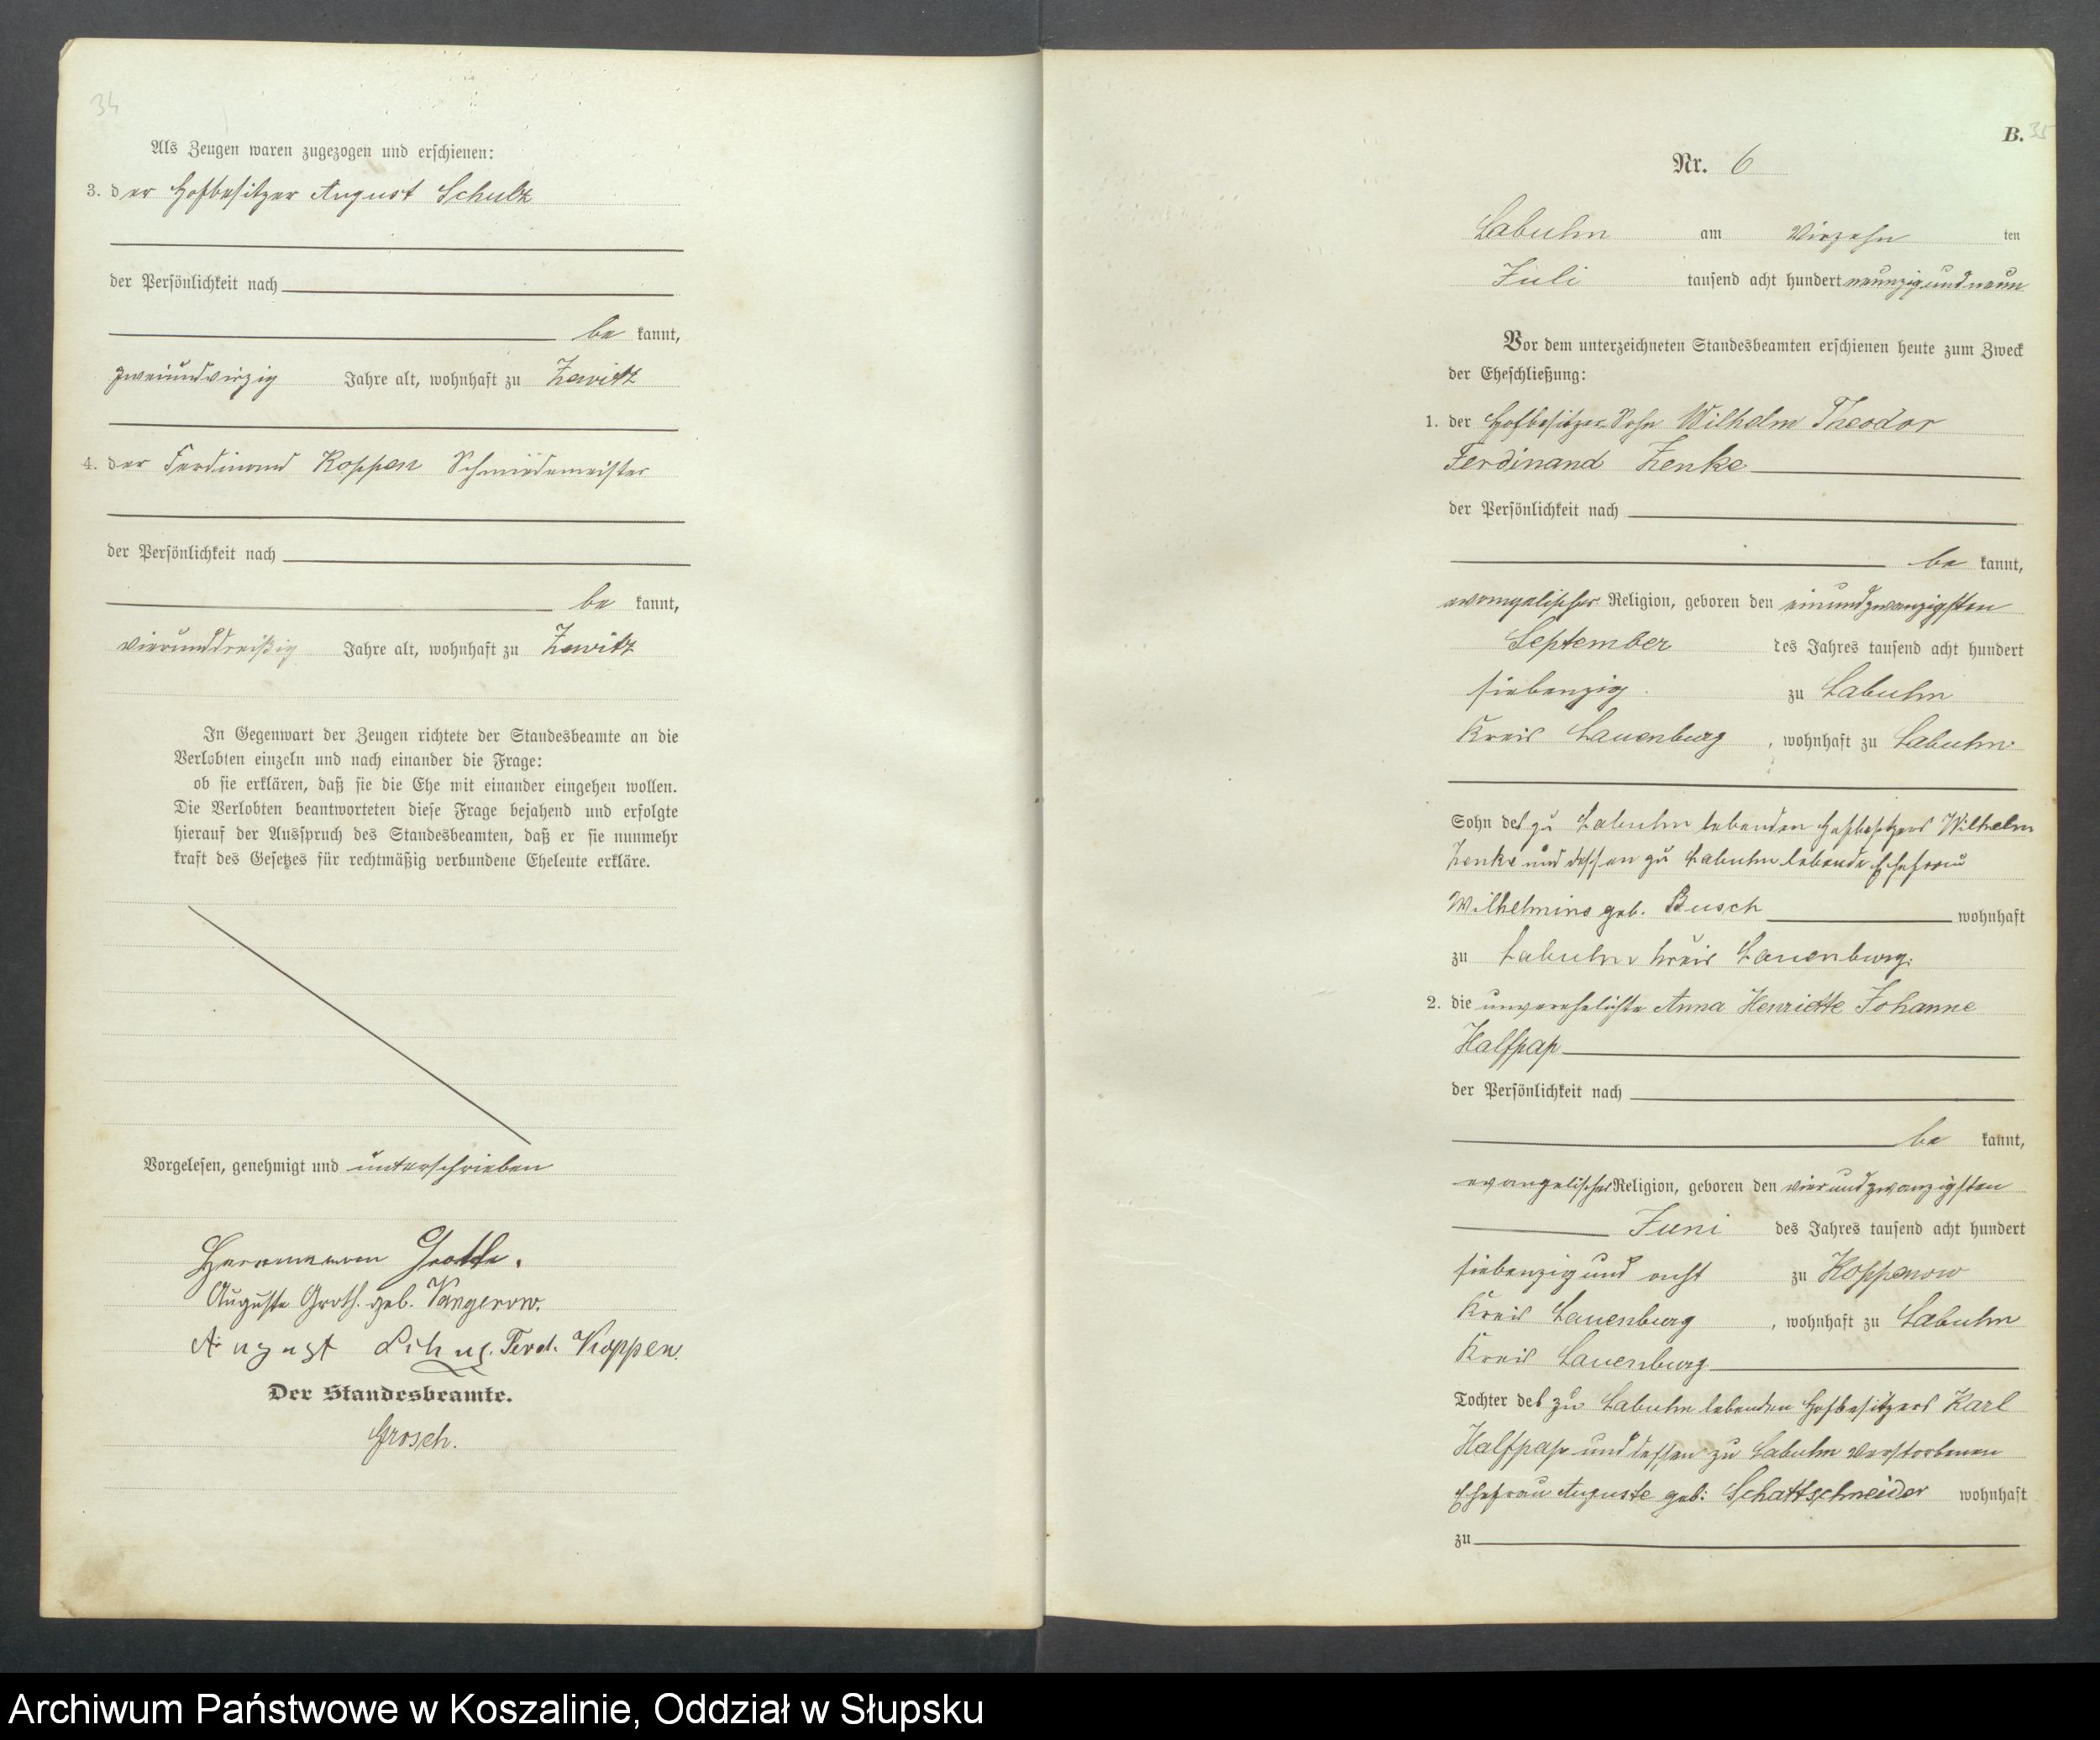 34
Als Zeugen waren zugezogen und erschienen:
3. der Hofbesitzer August Schulz
der Persönlichkeit nach
be kannt,
zweiundvirzig Jahre alt, wohnhaft zu Zewitz
4. der Ferdinand Koppen Schmiedemeister
der Persönlichkeit nach
be kannt,
vierunddreißig Jahre alt, wohnhaft zu Zewitz
In Gegenwart der Zeugen richtete der Standesbeamte an die
Verlobten einzeln und nach einander die Frage:
ob sie erklären, daß sie die Ehe mit einander eingehen wollen.
Die Verlobten beantworteten diese Frage bejahend und erfolgte
hierauf der Ausspruch des Standesbeamten, daß er sie nunmehr
kraft des Gesetzes für rechtmäßig verbundene Eheleute erkläre.
Vorgelesen, genehmigt und unterschrieben
Herrmann
Auguste Groth. geb. Vangerow.
August Ferd. Koppen.
Der Standesbeamte.
Grosch.
B. 35
Nr. 6
Labuhn am virzehn ten
Juli tausend acht hundert neunzigundneun
Vor dem unterzeichneten Standesbeamten erschienen heute zum Zweck
der Eheschließung:
1. der Hofbesitzer Sohn Wilhelm Theodor
Ferdinand Zenke
der Persönlichkeit nach
be kannt,
evangelischer Religion, geboren den einundzwanzigsten
September des Jahres tausend acht hundert
siebenzig zu Labuhn
Kreis Lauenburg, wohnhaft zu Labuhn
Sohn des zu Labuhn lebenden Hofbesitzers Wilhelm
Zenke und dessen zu Labuhn lebende Ehefrau
Wilhelmine geb. Busch wohnhaft
zu Labuhn Kreis Lauenburg.
2. die unverehelichte Anna Henriette Johanne
Halfpap
der Persönlichkeit nach
be kannt,
evangelischer Religion, geboren den vierundzwanzigsten
Juni des Jahres tausend acht hundert
siebenzigund acht zu Koppenow
Kreis Lauenburg, wohnhaft zu Labuhn
Kreis Lauenburg
Tochter des zu Labuhn lebenden Hofbesitzers Karl
Halfpap und dessen zu Labuhn verstorbenen
Ehefrau Auguste geb: Schattschneider wohnhaft
zu
Archiwum Państwowe w Koszalinie, Oddział w Słupsku